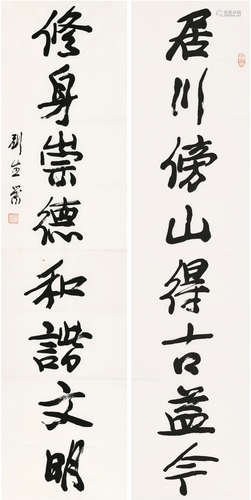 居川傍山得古益今
修身崇德和諧文明